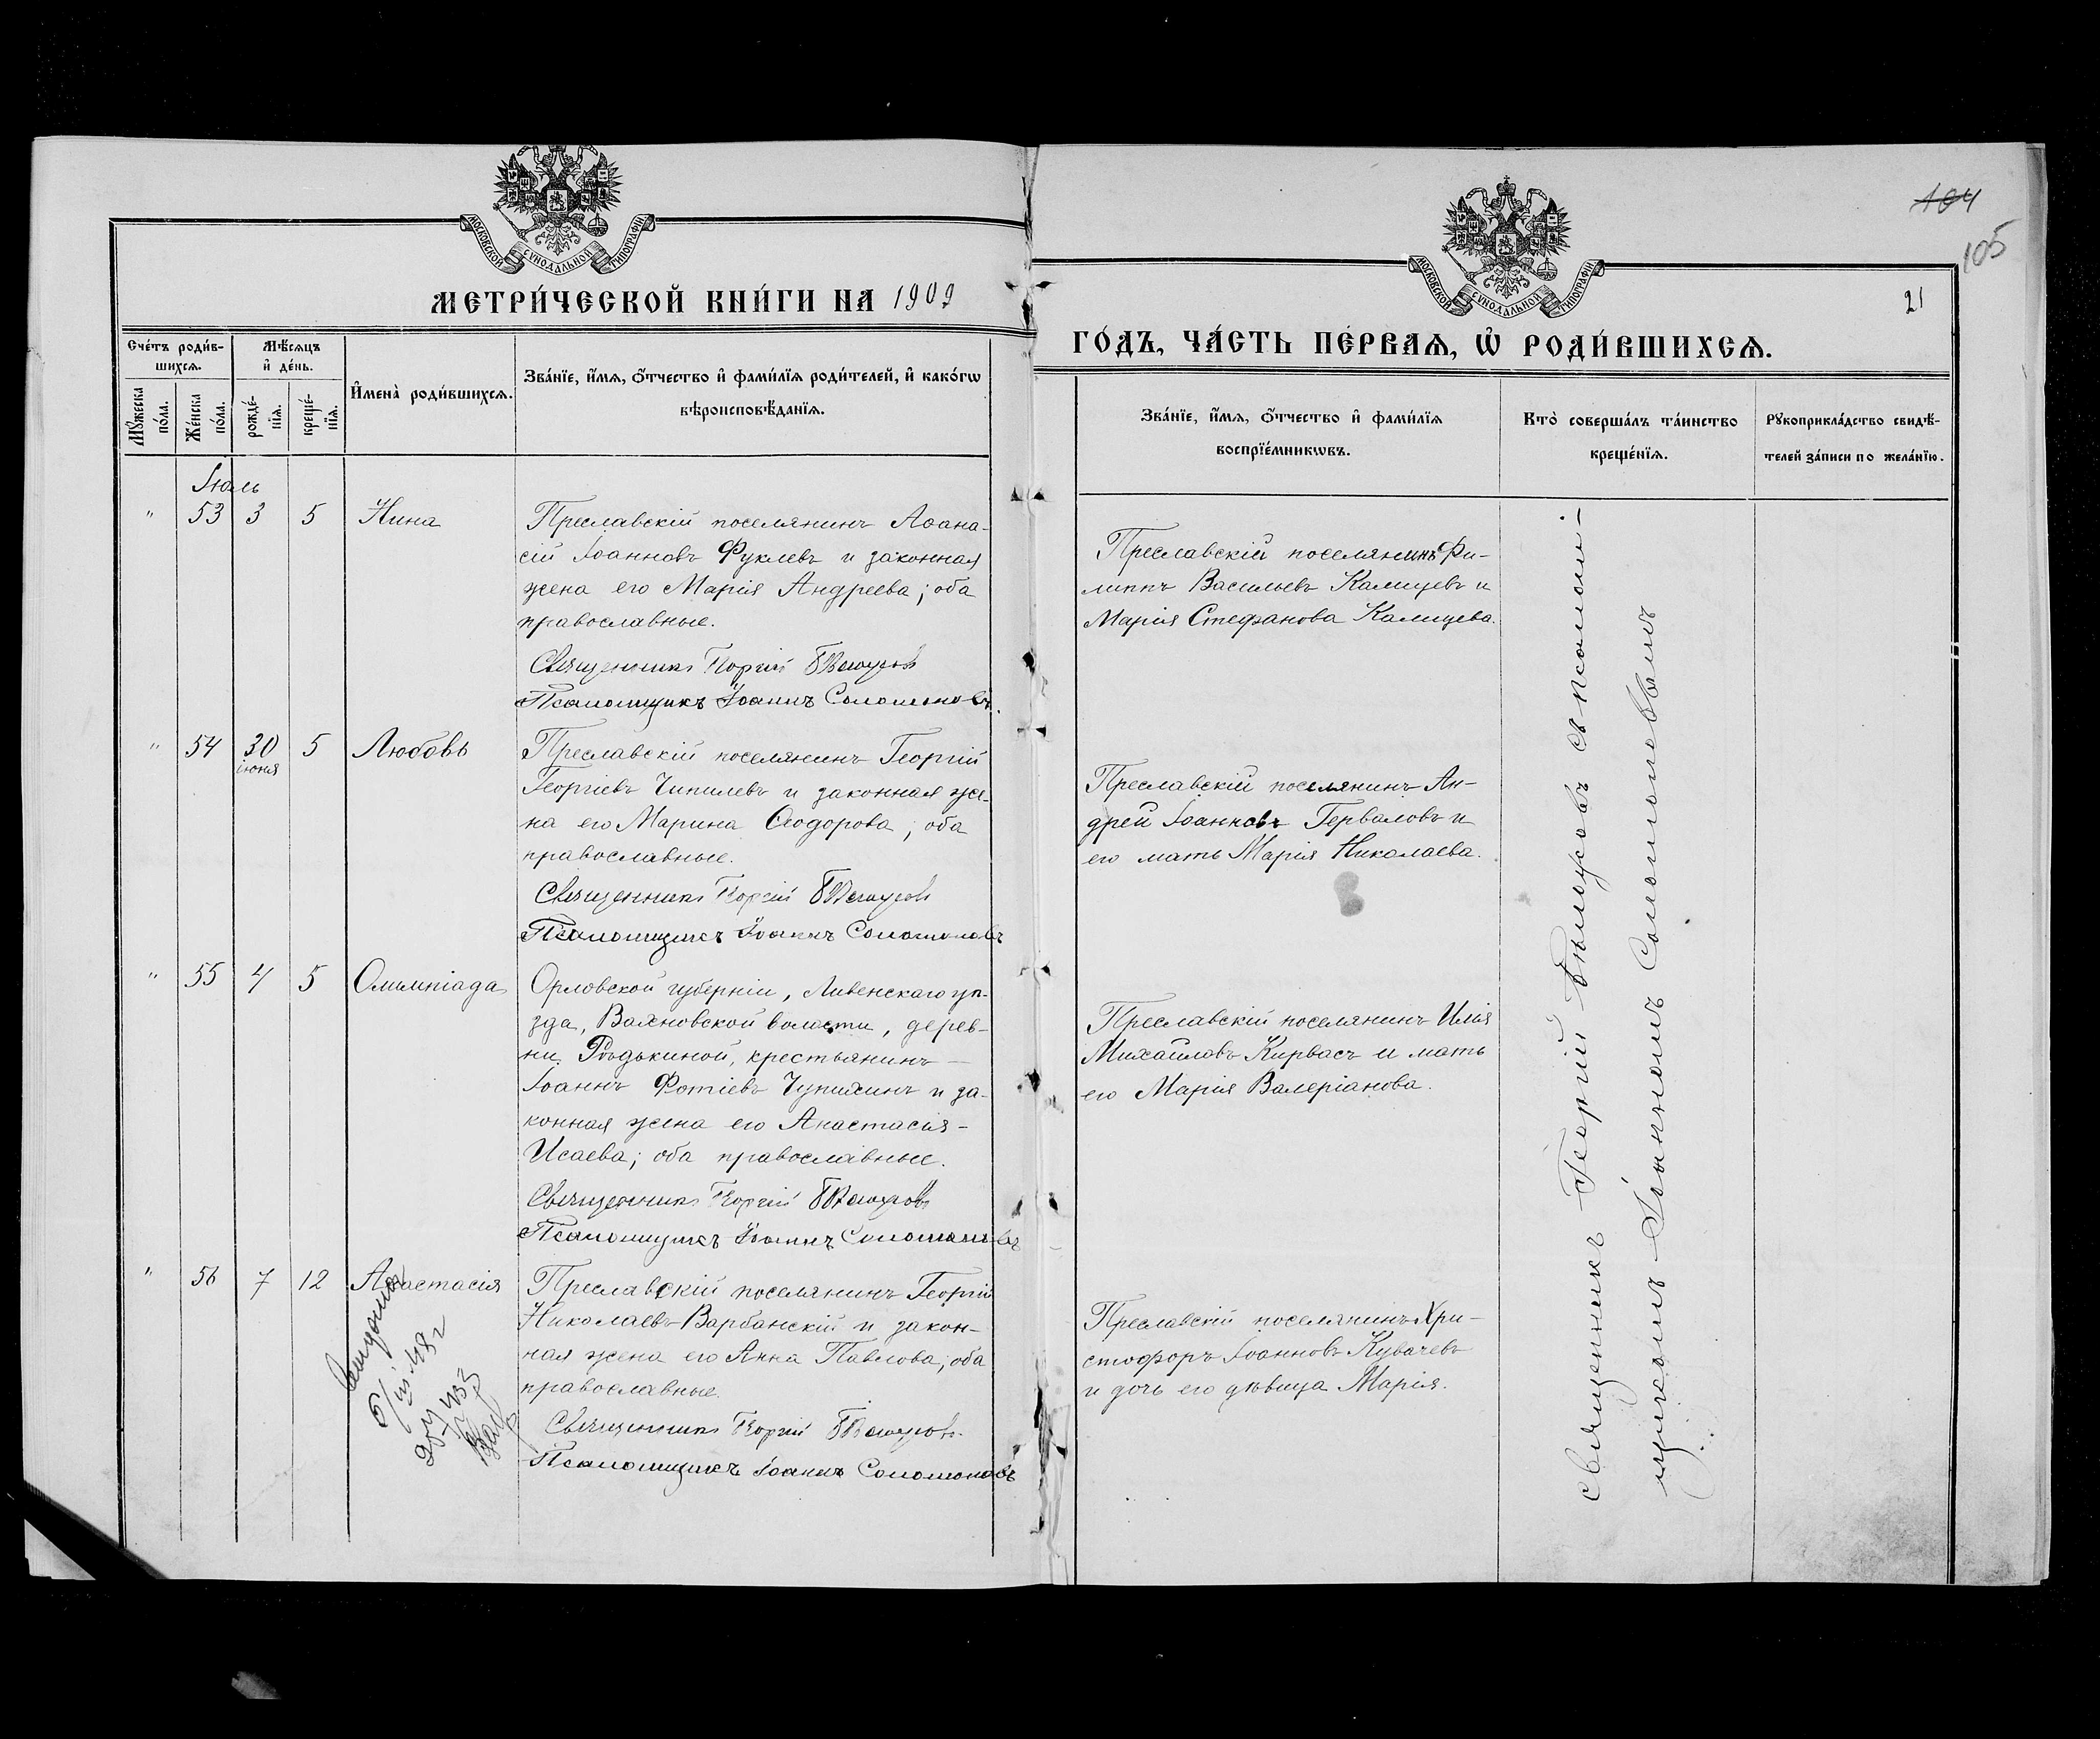 МОСКОВСКОЙ СУНОДАЛЬНОЙ ТИПОГРАФІИ
МЕТРИ́ЧЕСКОЙ КНИ́ГИ НА 1909
Сче́тъ роди́в-
шихсѧ.
Мѣ́сѧцъ
и҆ де́нь.
Мꙋ́жеска
по́ла.
Же́нска
по́ла.
рожде́-
нїѧ.
креще́-
нїѧ.
И҆мена̀ роди́вшихсѧ.
Зва́нїе, и҆́мѧ, ѻ҆́тчество и҆ фами́лїѧ роди́телей, и҆ како́гѡ
вѣроисповѣ́данїѧ.
Іюль
" 53 3 5 Нина
Преславскій поселянинъ Аѳана-
сій Іоанновъ Фуклевъ и законная
жена его Марія Андреева; оба
православные.
Священникъ Георгій Бѣлоусовъ
Псаломщикъ Іоаннъ Соломоновъ.
" 54 30 5 Любовь
іюня
Преславскій поселянинъ Георгій
Георгіевъ Чипилевъ и законная же-
на его Марина Ѳеодорова; оба
православные.
Священникъ Георгій Бѣлоусовъ
Псаломщикъ Іоаннъ Соломоновъ
" 55 4 5 Олимпіада
Орловской губерніи, Ливенскаго уѣ-
зда, Вахновской волости, дерев-
ни Рѣдькиной, крестьянинъ
Іоаннъ Фотіевъ Чупихинъ и за-
конная жена его Анастасія
Исаева; оба православные.
Священникъ Георгій Бѣлоусовъ
Псаломщикъ Іоаннъ Соломоновъ
" 56 7 12 Анастасія
Преславскій поселянинъ Георгій
Николаевъ Варбанскій и закон-
ная жена его Анна Павлова; оба
православные.
Священникъ Георгій Бѣлоусовъ.
Псаломщикъ Іоаннъ Соломоновъ
104
105
21
МОСКОВСКОЙ СУНОДАЛЬНОЙ ТИПОГРАФІИ
ГО́ДЪ, ЧА́СТЬ ПЕ́РВАѦ, Ѡ҆ РОДИ́ВШИХСѦ.
Зва́нїе, и҆́мѧ, ѻ҆́тчество и҆ фами́лїѧ
воспрїе́мникѡвъ.
Кто̀ соверша́лъ та́инство
креще́нїѧ.
Рꙋкоприкла́дство свидѣ́-
телей за́писи по жела́нїю.
Преславскій поселянинъ Фи-
липпъ Васильевъ Калицевъ и
Марія Стефанова Калицева.
Преславскій поселянинъ Ан-
дрей Іоанновъ Герваловъ и
его мать Марія Николаева.
Преславскій поселянинъ Илія
Михайловъ Кирвасъ и мать
его Марія Валеріанова.
Преславскій поселянинъ Хри-
стофоръ Іоанновъ Кувачевъ
и дочь его дѣвица Марія.
Священникъ Георгій Бѣлоусовъ съ псалом-
щикомъ Іоанномъ Соломоновымъ